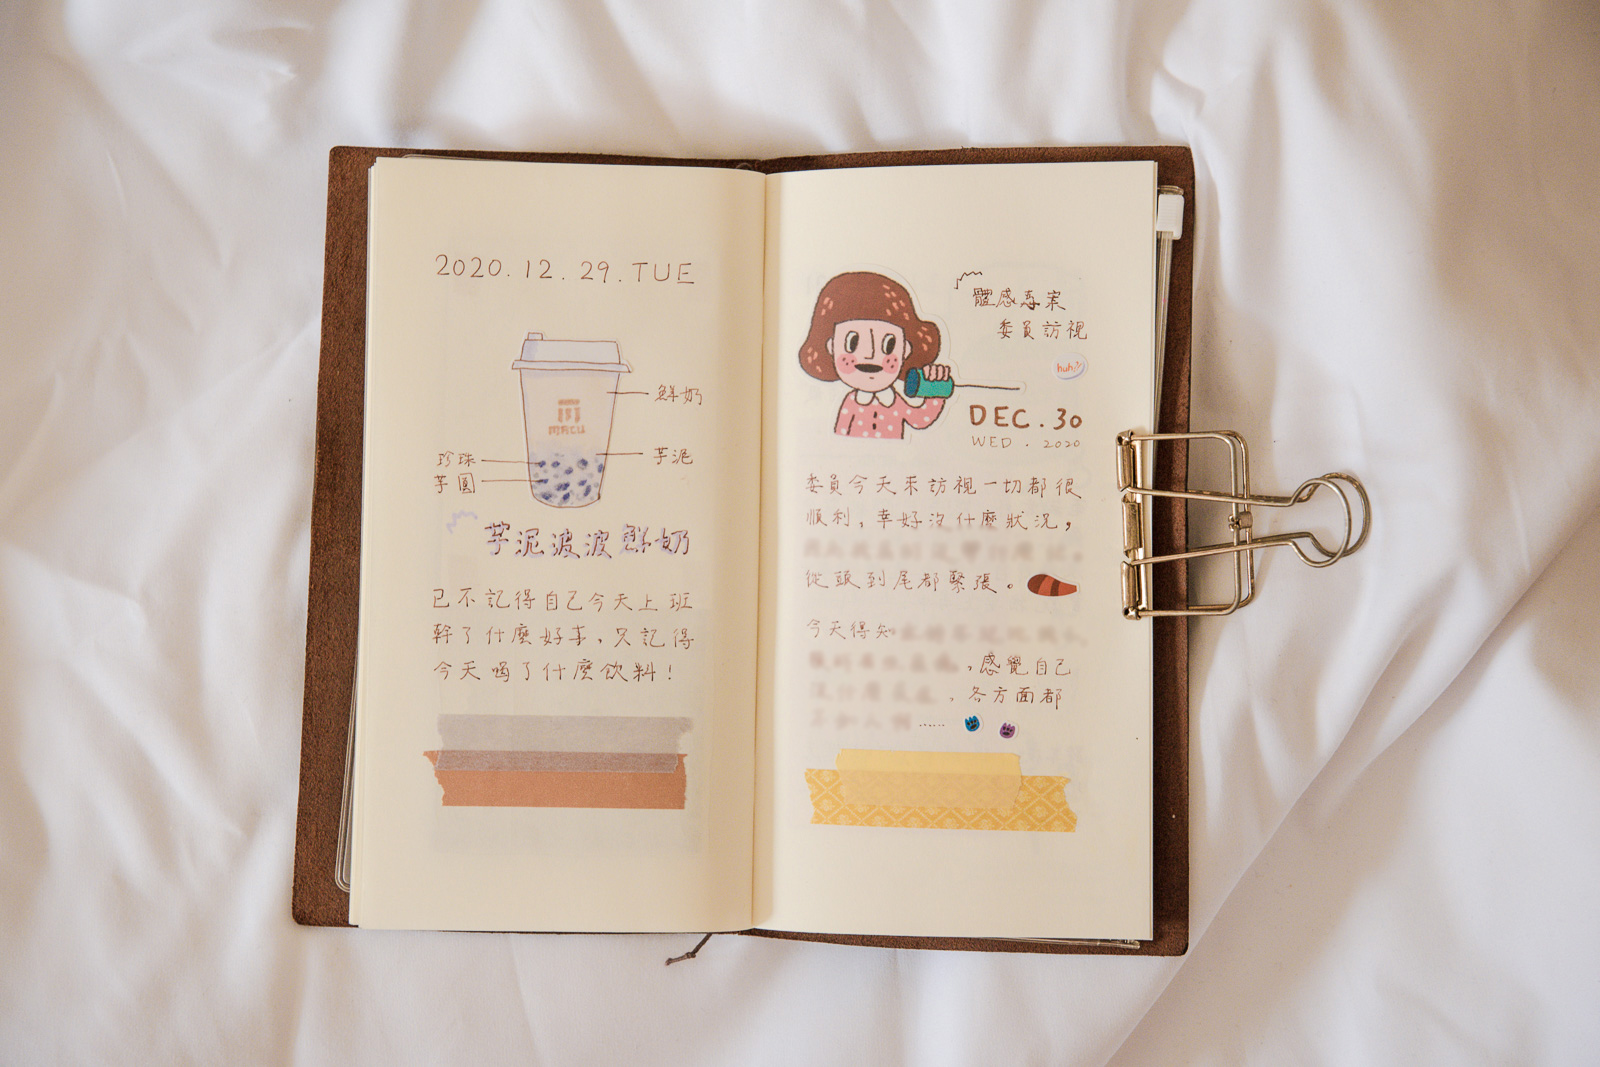 2020.12.29.TUE
鮮奶
芋泥
珍珠
芋圓
MACU
芋泥波波鮮奶
已不記得自己今天上班
幹了什麼好事,只記得
今天喝了什麼飲料!
體感專案
委員訪視
huhu
DEC.30
WED.2020
委員今天來訪視一切都很
順利,幸好沒什麼狀況,
從頭到尾都緊張。
今天得知
,感覺自己
,各方面都
……